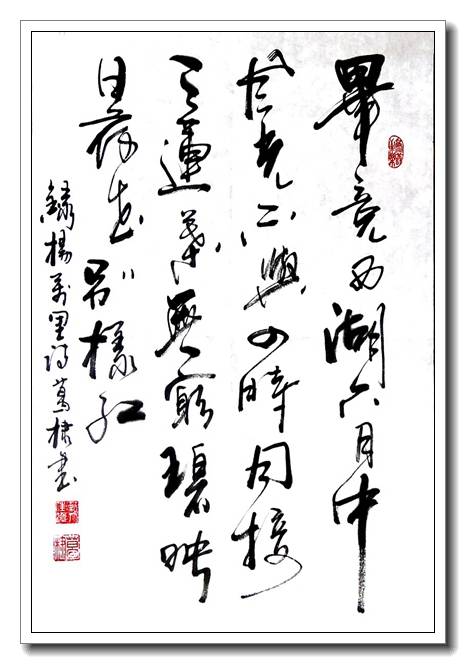 畢竟西湖六月中
風光不與四時同接
天蓮葉無窮碧映
日荷花別樣紅
錄楊萬里詩棣書